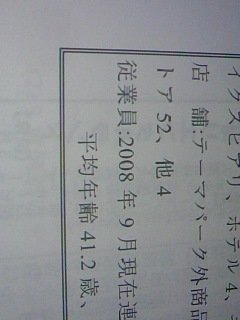 イクスピアリ、ホテル 4、
店　舗:テーマパーク外商品
トア 52、他 4
従業員:2008 年 9 月現在連
平均年齢 41.2 歳、